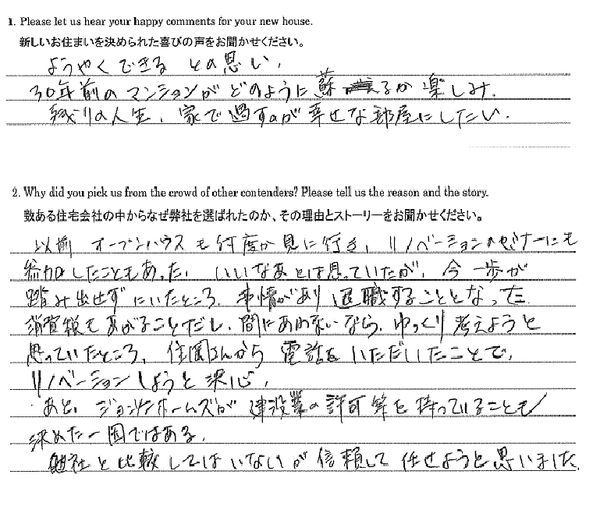 1. Please let us hear your happy comments for your new house.
新しいお住まいを決められた喜びの声をお聞かせください。
ようやくできる との思い、
30年前のマンションがどのように蘇るか楽しみ。
残りの人生、家で過すのが幸せな部屋にしたい。
2. Why did you pick us from the crowd of other contenders? Please tell us the reason and the story.
数ある住宅会社の中からなぜ弊社を選ばれたのか、その理由とストーリーをお聞かせください。
以前 オープンハウスも何度か見に行き、リノベーションのセミナーにも
参加したこともあった。いいなあとは思っていたが、今一歩が
踏み出せずにいたところ、事情があり退職することとなった
消費税もあがることだし、間にあわないなら、ゆっくり考えようと
思っていたところ、住岡さんから 電話をいただいたことで、
リノベーションしようと決心。
あと、ジョンソンホームズが 建設業の許可等を持っていることも
決めた一因ではある。
他社と比較してはいないが信頼して任せようと思いました